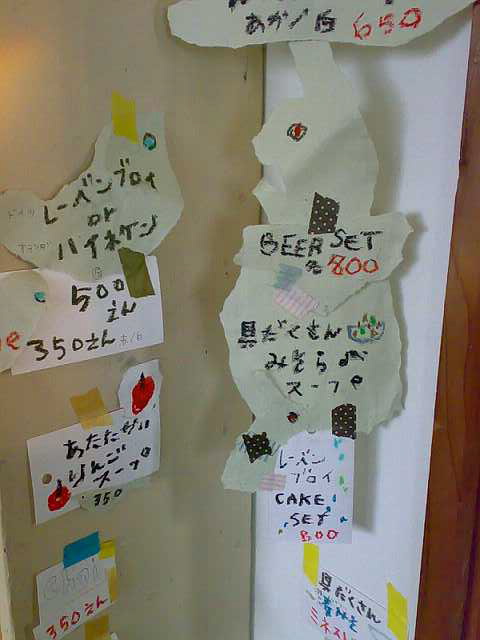 あか/白 650
レーベンブロイ
or
ハイネケン
ドイツ
オランダ
500
えん
350えん
あたたかい
りんご
スープ
350
chai
350えん
BEER SET
800
具だくさん
みそら
スープ
レーベン
ブロイ
CAKE
SET
800
具だくさん
ミネス